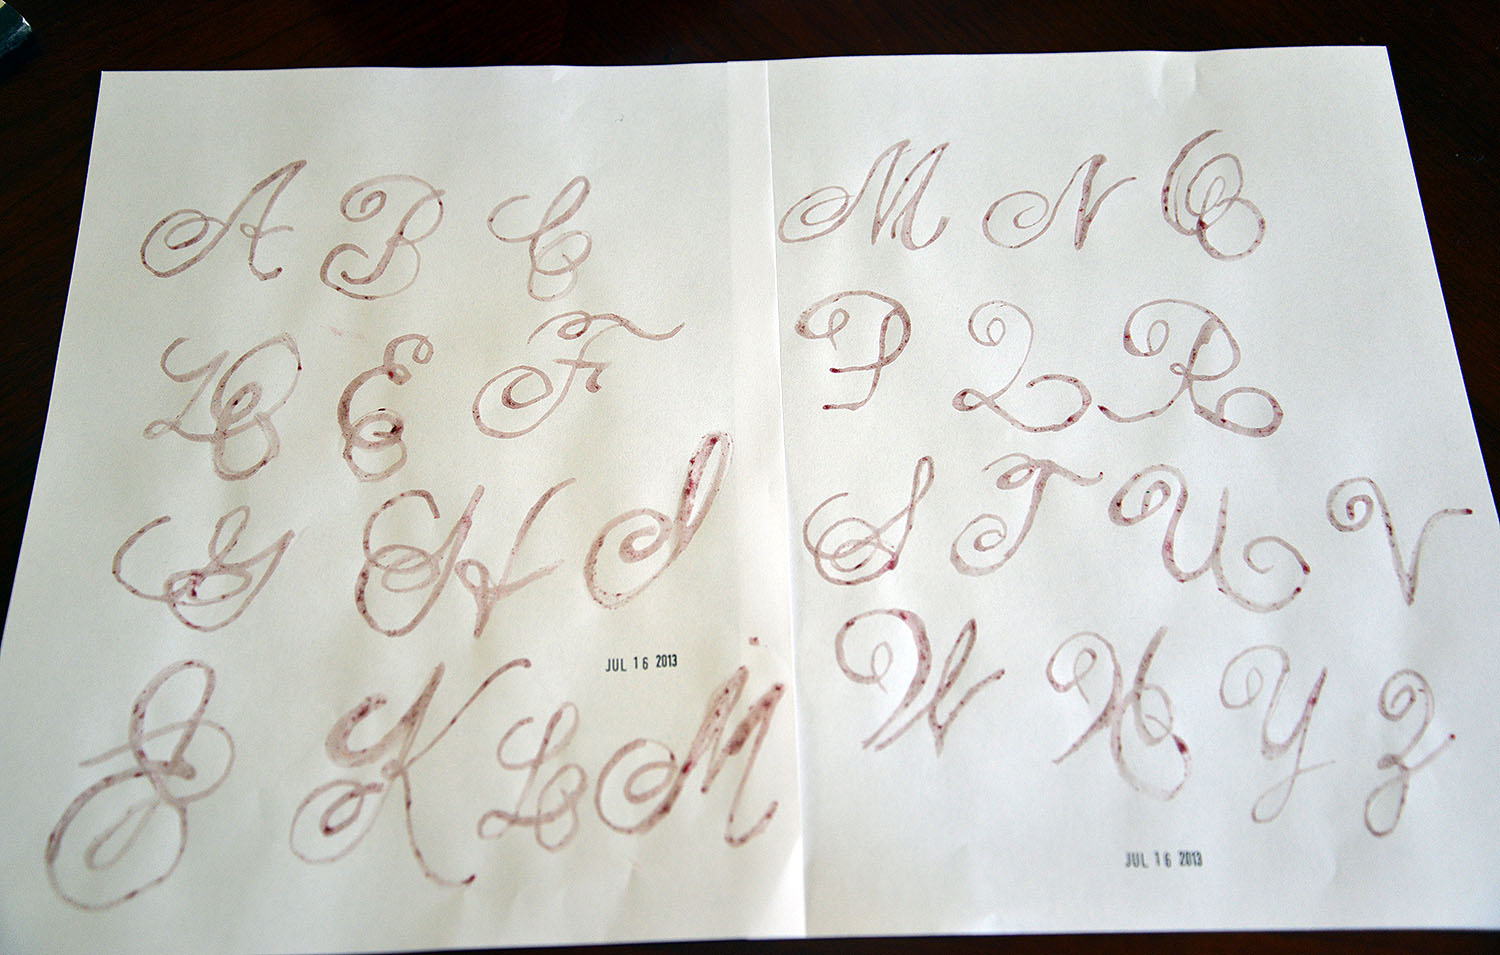 A B C
D E F
G H I
JUL 16 2013
J K L M
M N O
P Q R
S T U V
W X Y Z
JUL 16 2013